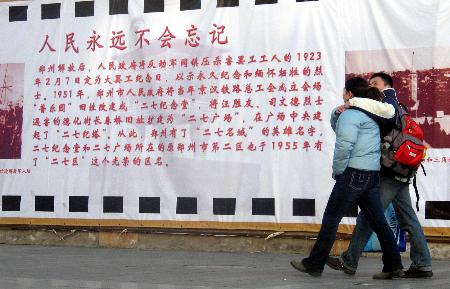 人民永远不会忘记
郑州解放后，人民政府将反动军阀镇压杀害罢工工人的1923
年2月7日定为大罢工纪念日，以示永久纪念和缅怀牺牲的烈
士，1951年，郑州市人民政府将当年京汉铁路总工会成立会场
“普乐园”旧址改建成“二七纪念堂”，将汪胜友、司文德烈士
遇害的德化街长春桥旧址扩建为“二七广场”，在广场中央
起了“二七纪塔”，从此，郑州有了“二七名城”的英雄名字，
二七纪念堂和二七广场所在的原郑州市第二区也于1955年有
了“二七区”这个光荣的区名。